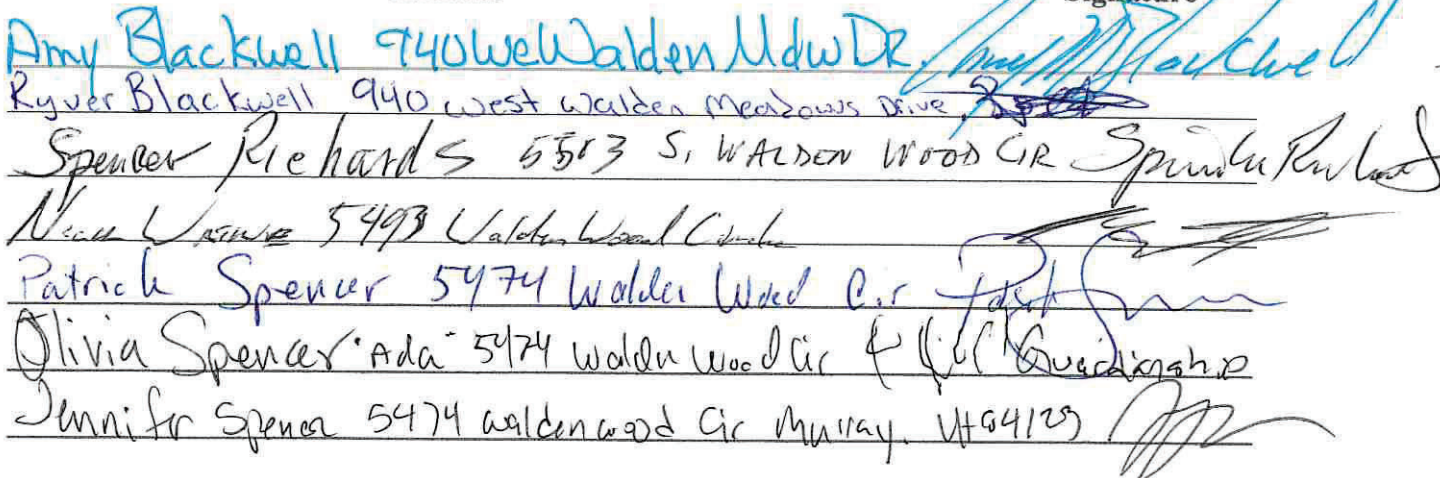 Signature
Amy Blackwell 940 We Walden Mdw DR. Amy M Blackwell
Ryver Blackwell 940 west walden Meadows Drive
Spencer Richards 5583 S, WALDEN WOOD CIR
5493 Walden Wood Circle
Patrick Spencer 5474 Walden Wood Cir
Olivia Spencer "Ada" 5474 Waldn Wood Cir Guardianship
Jennifer Spencer 5474 waldenwood Cir Murray. Ut 84123